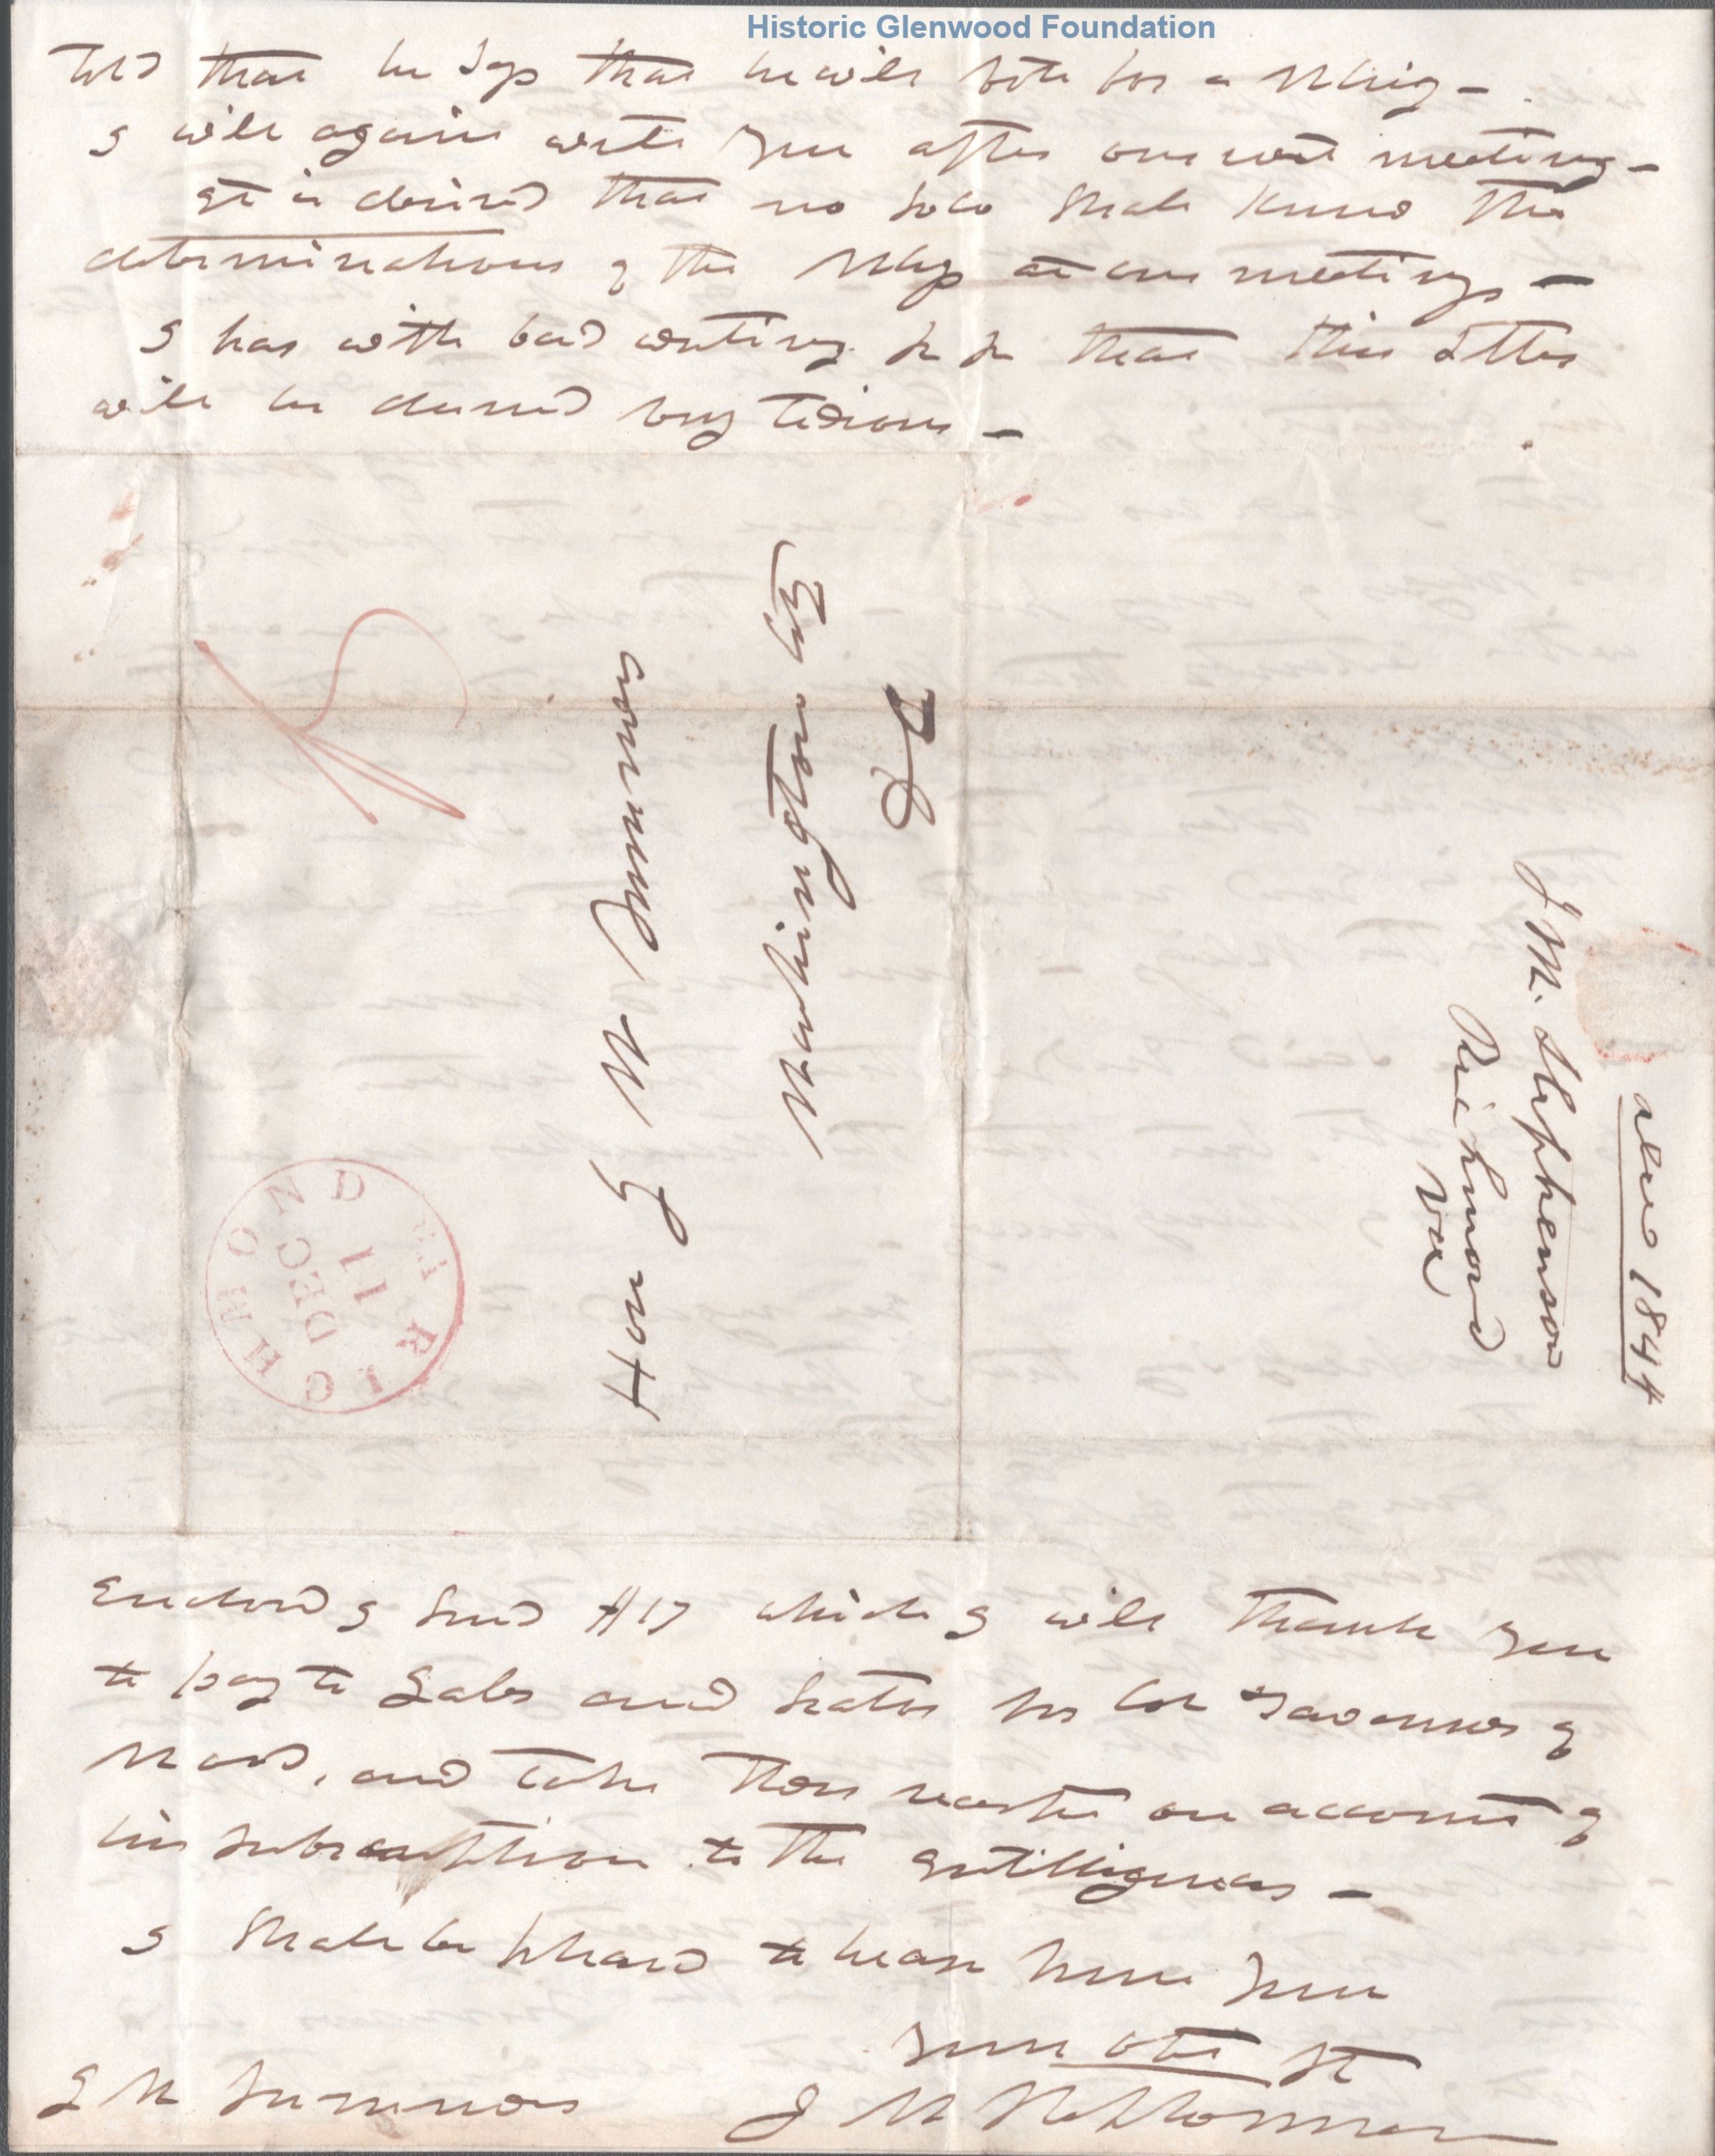 Historic Glenwood Foundation
told that he says that he will vote for a Whig -
I will again write you after our next meeting -
It is desired that no loco shall know the
determinations of the Whigs at our meetings -
I has with bad writing that this letter
will be deemed very tedious -
Hon G W Summers
Washington City
DC
J M. Stephenson
Richmond
Va
1844
RICHMOND Va
DEC
11
Enclosed I send $17 which I will thank you
to pay to Gales and Seaton for Col of
Wood, and take their receipt on account of
his subscription to the Intelligencer -
I shall be pleased to hear from you
your obt St
G W Summers
J M Stephenson